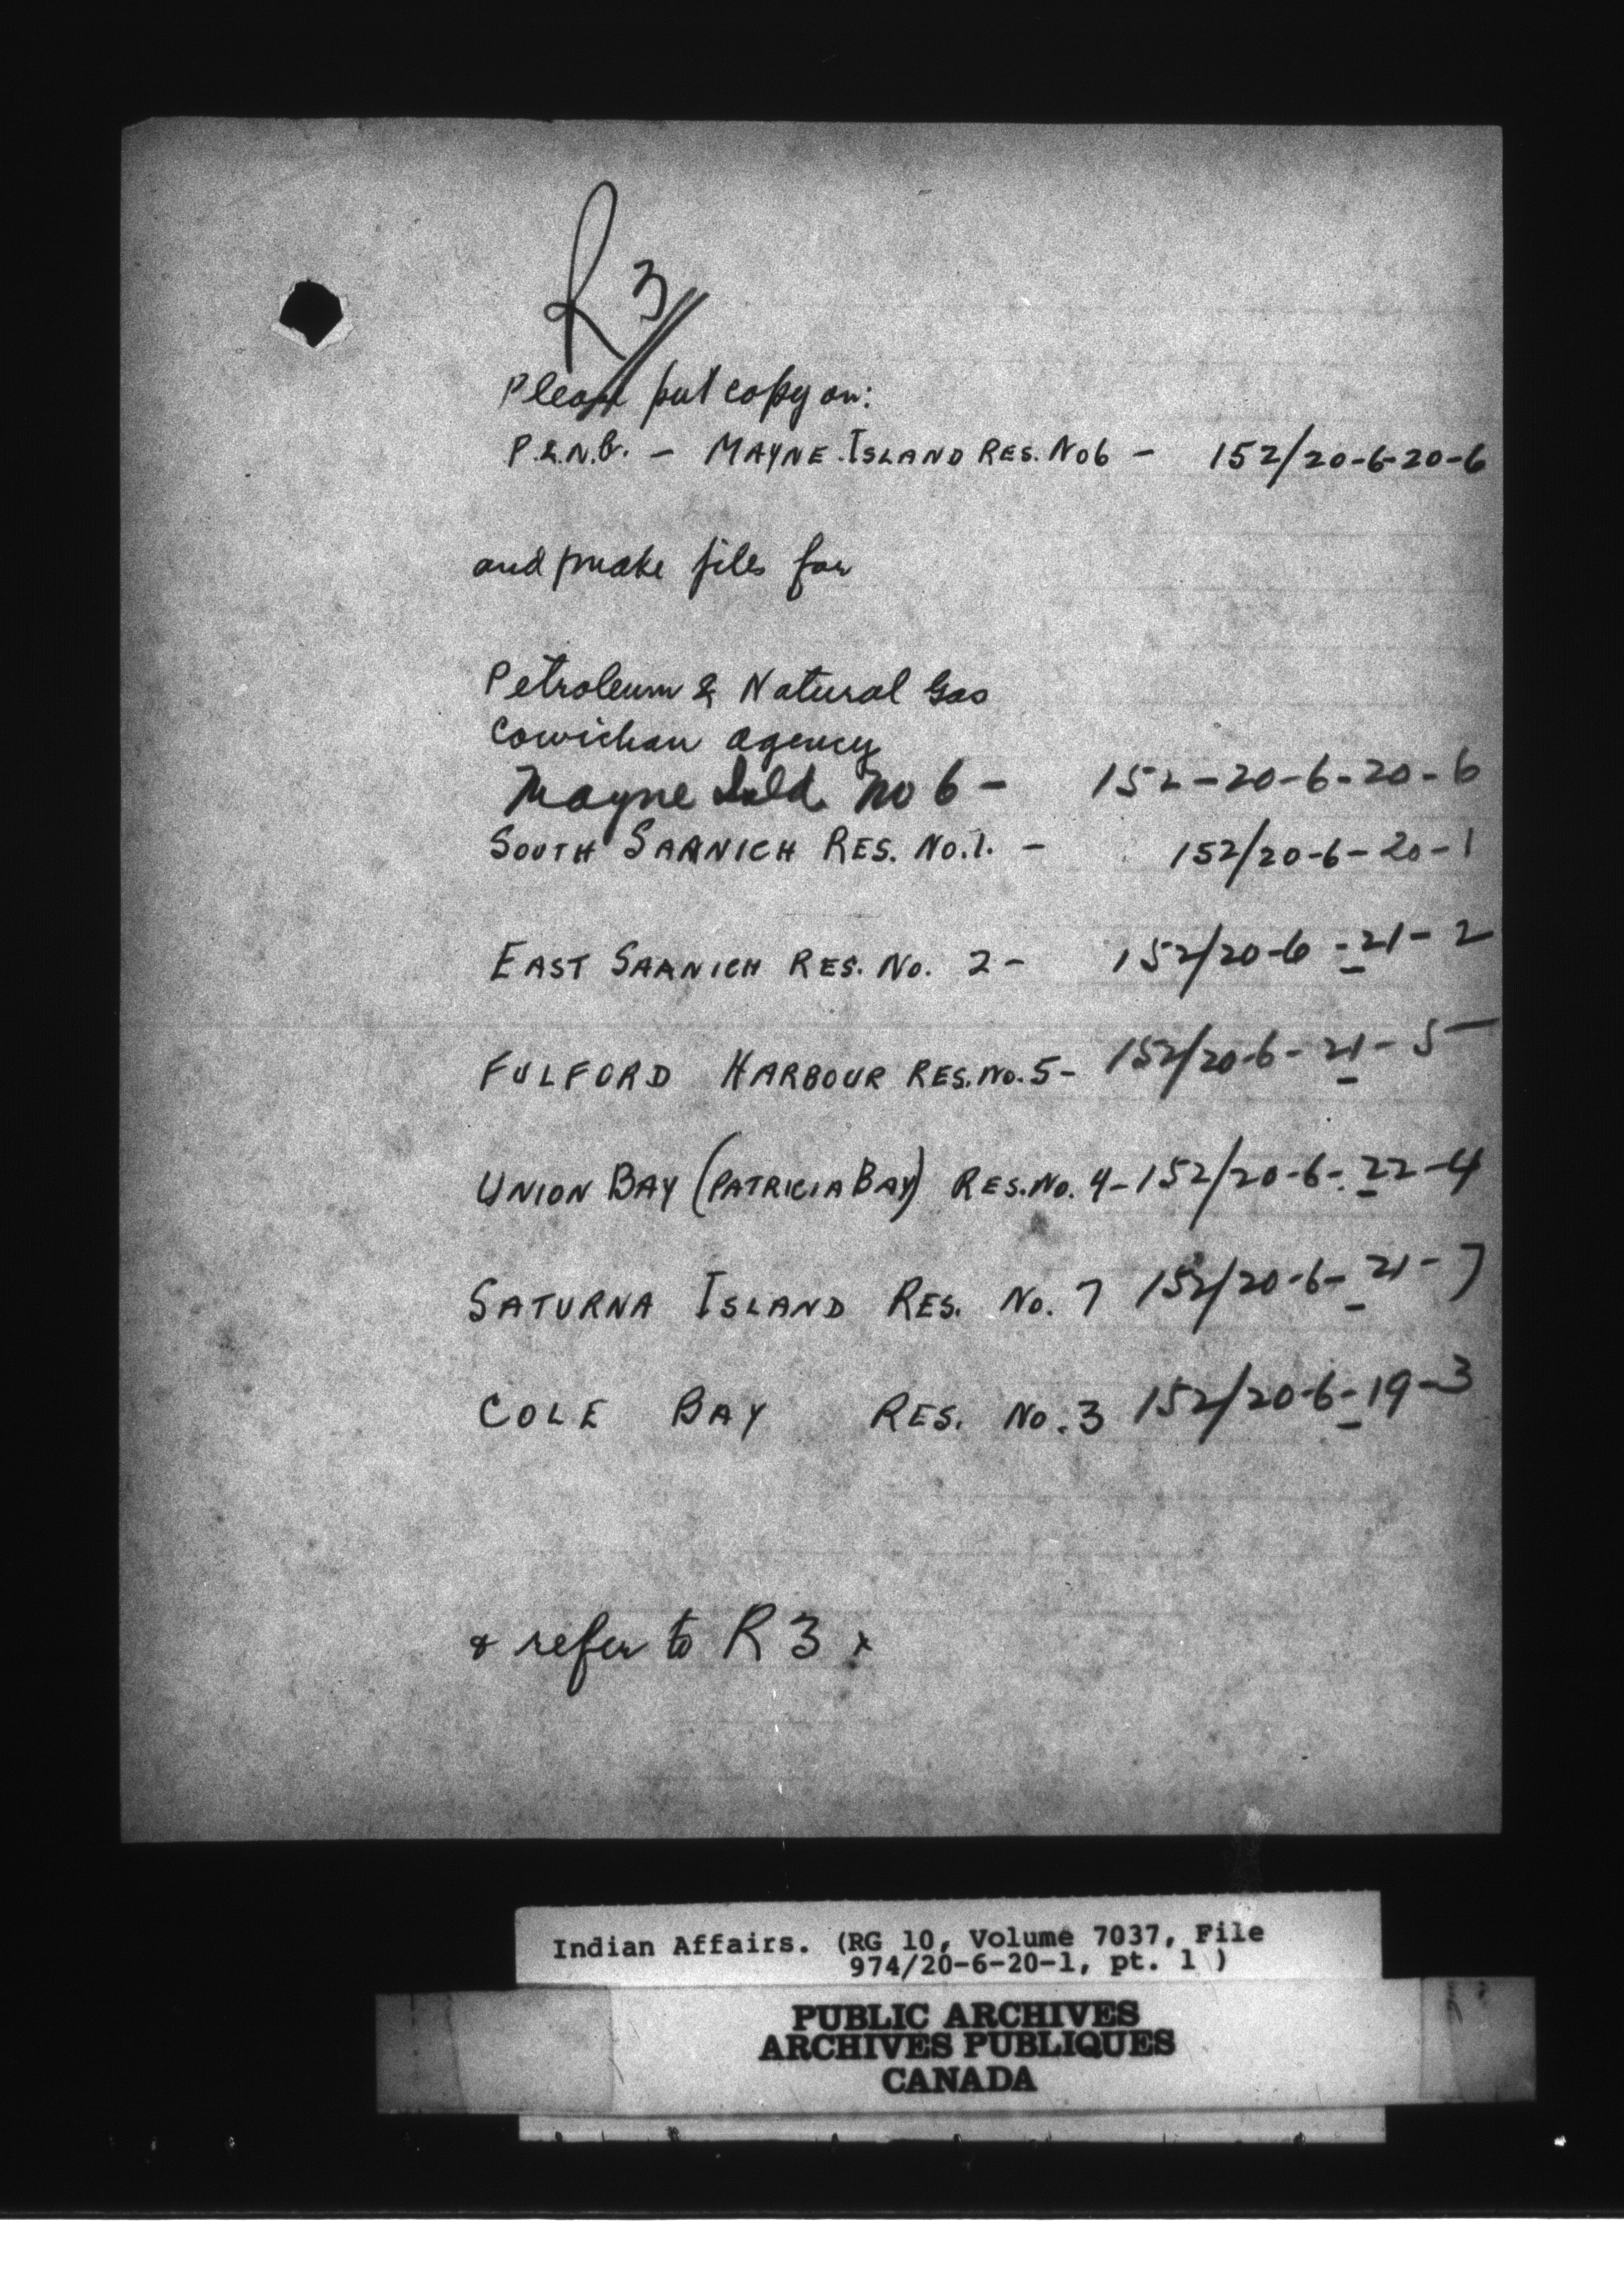 R3
Please put copy on:
P.&N.G. - MAYNE ISLAND RES. No 6 - 152/20-6-20-6
and make files for
Petroleum & Natural Gas
Cowichan agency
Mayne Isld. No 6 - 152-20-6-20-6
SOUTH SAANICH RES. No. 1. - 152/20-6-20-1
EAST SAANICH RES. No. 2 - 152/20-6-21-2
FULFORD HARBOUR RES. No. 5 - 152/20-6-21-5
UNION BAY (PATRICIA BAY) RES. No. 4 - 152/20-6-22-4
SATURNA ISLAND RES. No. 7 152/20-6-21-7
COLE BAY RES. No. 3 152/20-6-19-3
& refer to R3
Indian Affairs. (RG 10, Volume 7037, File
974/20-6-20-1, pt. 1 )
PUBLIC ARCHIVES
ARCHIVES PUBLIQUES
CANADA